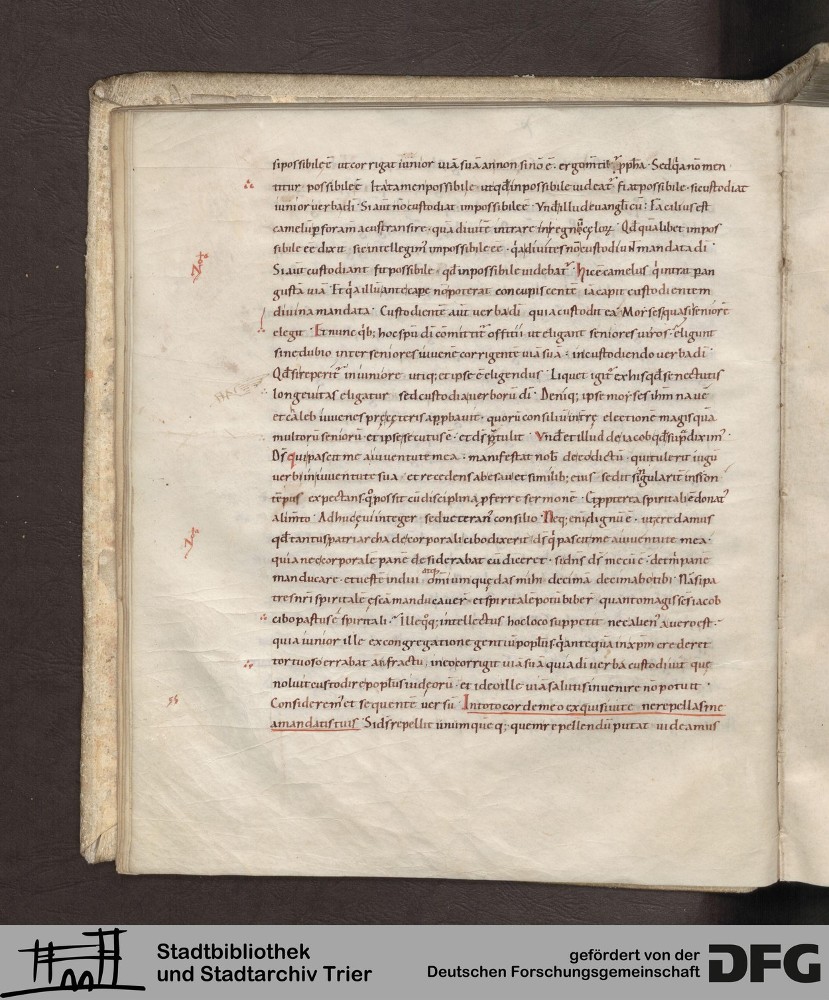 si possibile ē ut corrigat iunior uiā suā an non si nō ē
titur possibile ē Ita tamen possibile ut qđ inpossibile uideat fiat possibile si custodiat
iunior uerba dī Si aut nō custodiat impossibile ē Vnđ illud euanglicū Facilius est
camelū p foram acus transire quā diuitē intrare in regnū cęlor Qđ quā libet impos
sibile eē dixit sic intellegim impossibile eē quia diuites nō custodiunt mandata dī
Si aut custodiant fit possibile qđ inpossibile uidebat Hic ē camelus qui intrat p an
gusta uia Et quia illū ante cape nō poterat concupiscentē iā capit custodientem
diuina mandata Custodientē aut uerba dī quia custodit ea Moyses quasi seniorē
elegit Et nunc
sine dubio inter seniores iuuenē corrigentē uiā suā in custodiendo uerba dī
Qđ si reperit in iuniore utiq; et ipse ē eligendus Liquet igit ex his qđ senectutis
longeuitas eligatur sed custodia uerborū dī Deniq; ipse moyses ihm naue
et caleb iuuenes pręceteris approbauit quorū consiliū
multorū seniorū et ipse secutus ē et ds ptulit Vnđ et illud de iacob qđ supra diximus
Ds qui pascit me a iuuentute mea manifestat nob de eo dictū qui tulerit iugū
uerbi in iuuentute sua et recedens ab esau et similib; eius sedit singularit in sion
tēpus expectans quo possit cū disciplina pferre sermonē
alimto Adhuc
qđ tantus patriarcha de corporali cibo dixerit ds qui pascit me a iuuentute mea
quia nec corporalē panē desiderabat cū diceret si dns ds mecū ē det m panē
manducare et uestē indui omium que das mihi decimā decimabo tibi Nā si pa
tres nri spiritalē ęscā manducauer et spiritalē potū biber quanto magis ses iacob
cibo pastus ē spiritali Ille quoq; intellectus hoc loco suppetit nec alien a uero est
quia iunior ille ex congregatione gentiū poplus qui antequā in xpm crederet
tortuoso errabat anfractu ineo corrigit uiā suā quia dī uerba custodiuit que
noluit custodire poplus iudeorū et ideo ille uiā salutis inuenire nō potuit
Considerem et sequentē uersū In toto corde meo exquisiui te ne repellas me
a mandatis tuis Si ds repellit unum quēq; quem repellendū putat uideamus
Stadtbibliothek
und Stadtarchiv Trier
gefördert von der
Deutschen Forschungsgemeinschaft
DFG